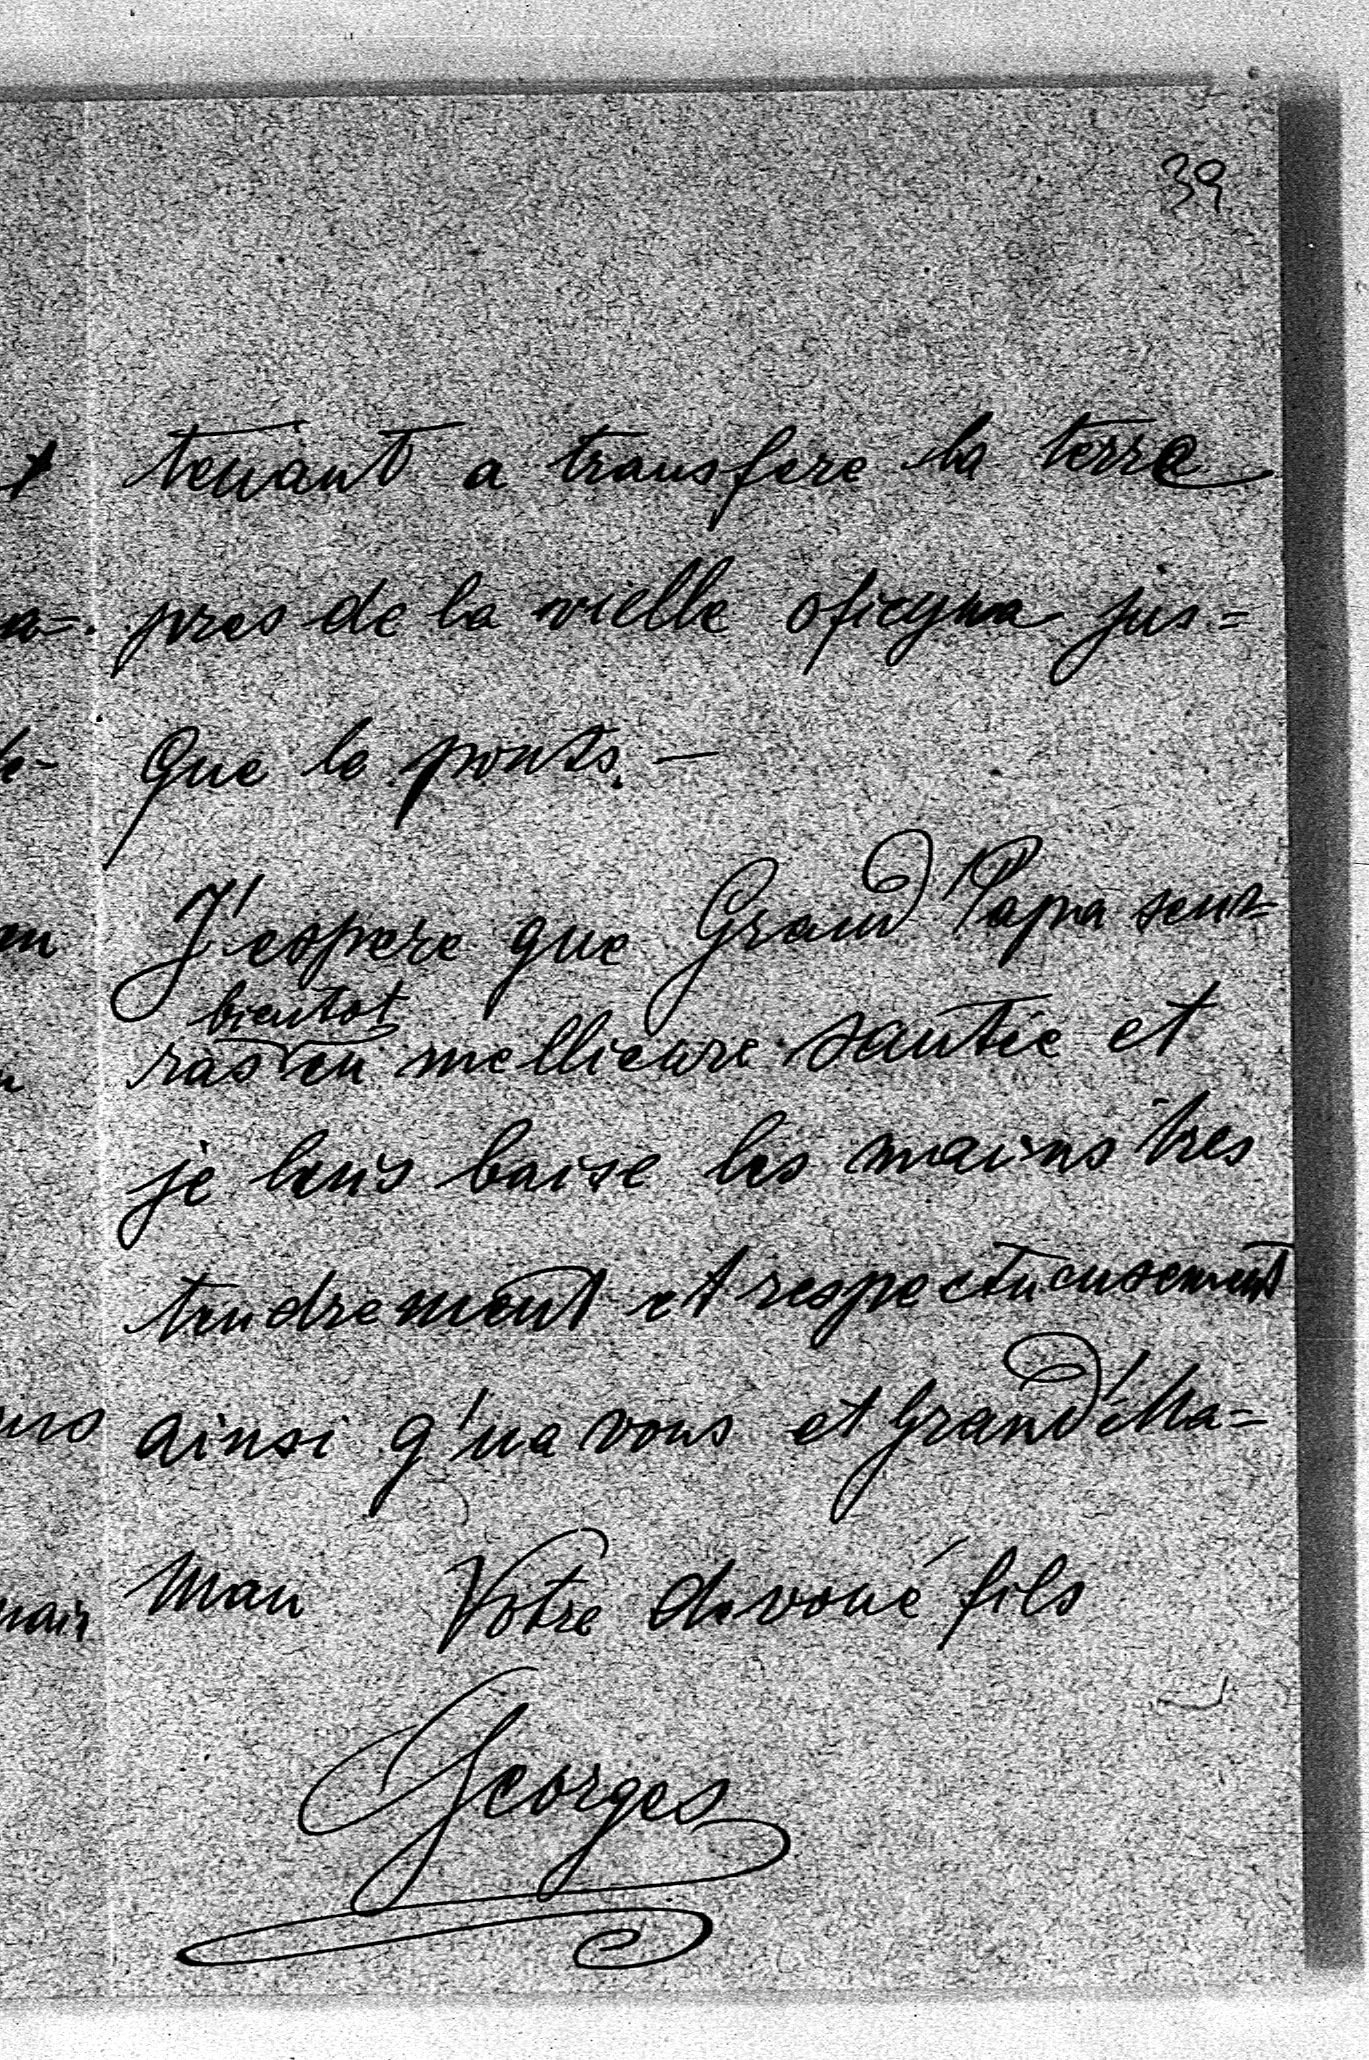 39
tenant a transfere la terre
pres de la vielle oficyna jus=
que le ponts. —
J'espere que Grand Papa sent-
bientot
ras en mellieure santie et
je lui baise les mains tres
tendrement et respectueusement
ainsi q'ua vous et Grand'Ma=
man Votre devoué fils
Georges